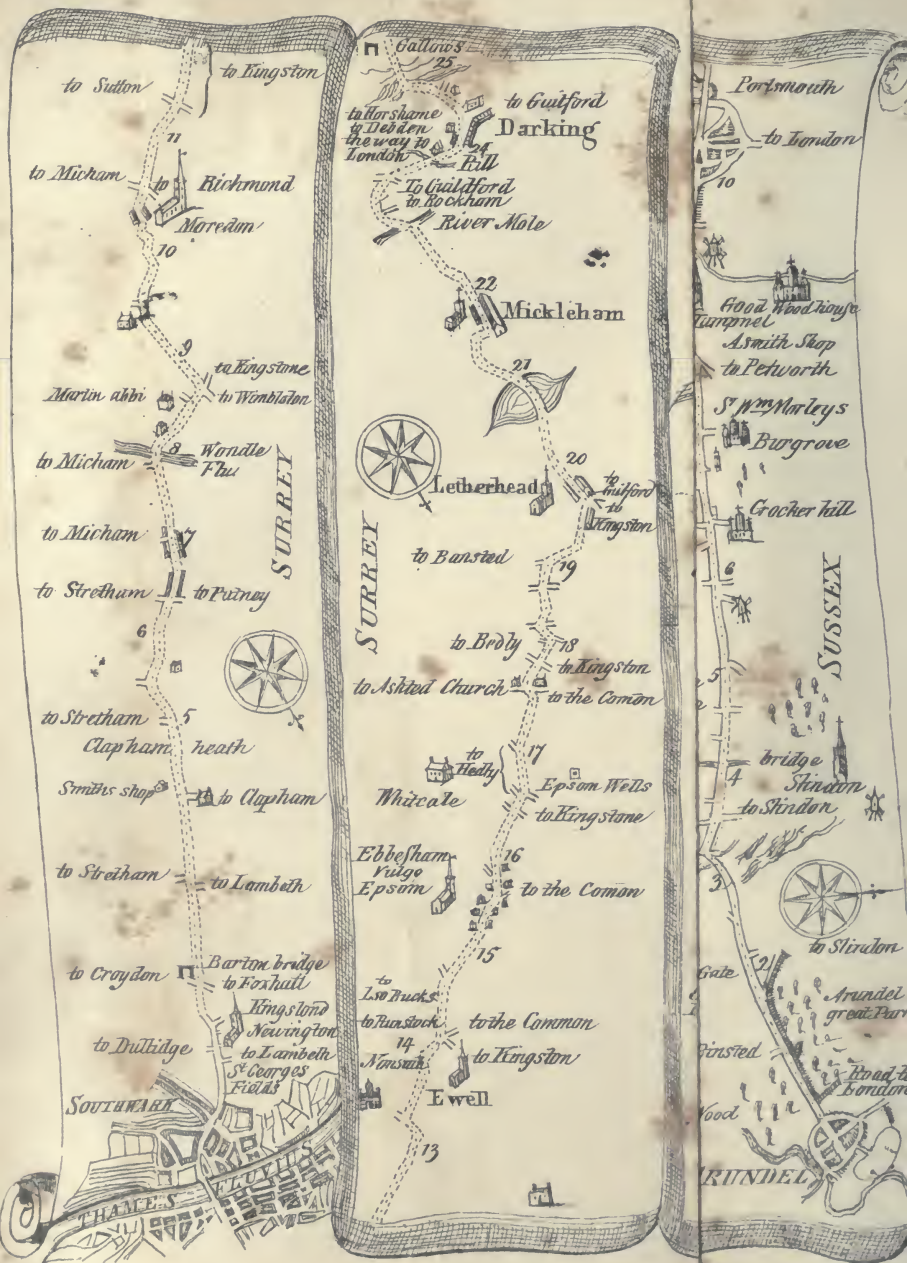 to Sutton
to Kingston
11
to Micham
to Richmond
Moredon
10
9
to Kingstone
to Wimbleton
Martin abbi
8
Wondle
Flu
to Micham
to Micham
7
to Stretham
to Putney
6
SURREY
to Stretham
5
Clapham heath
Smiths shop
to Clapham
to Stretham
to Lambeth
to Croydon
Barton bridge
to Foxhall
Kingslond
Newington
to Dullidge
to Lambeth
St Georges
Fields
SOUTHWARK
THAMES FLUVIUS
Gallows
25
to Horshame
to Debden
the way to
London
to Guilford
Darking
24
Rill
To Guildford
to Rockham
River Mole
22
Mickleham
21
20
Letherhead
to
Guilford
to
Kingston
to Bansted
19
SURREY
to Bedly
18
to Kingston
to Ashted Church
to the Comon
17
to
Hedly
Whitcale
Epsom Wells
to Kingstone
Ebbesham
Vulgo
Epsom
16
to the Comon
15
to
to Runstock
14
to the Common
Nonsuch
to Kingston
Ewell
13
Portsmouth
to London
10
Good Wood house
Asmith Shop
to Petworth
Sr Wm Morleys
Burgrove
Crocker hill
6
SUSSEX
5
bridge
4
Slindon
to Slindon
3
to Slindon
2
Gate
Arundel
great Par
Binsted
Road to
London
Wood
ARUNDEL